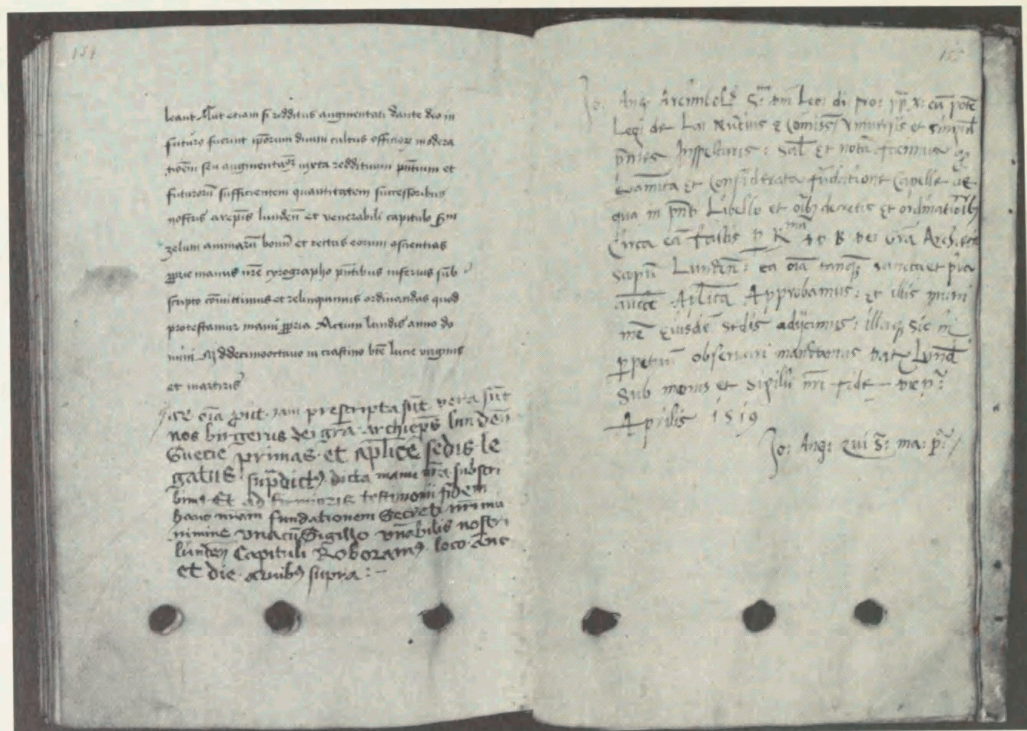 154
leant Aut etiam si redditus augmentari dante deo in
futuro fuerint ip̄orum diuini cultus officioꝝ modera
tioēm seu augmentaōꝫ iuxta reddituum pn̄tium et
futuroꝝ sufficientem quantitatem successoribus
nostris arepīs lunden̄ et venerabili capitulo scd̄m
zelum animarū bonū et rectas eorum osciencias
ꝓprie manus nr̄e cyrographo pn̄tibus inferius sub
scripto cōmittimus et relinquimus ordinandas quod
protestamur manu ꝓpria Actum lundis anno do
mini Mddecimooctauo in crastino bt̄e lucie virginis
et martiris
oīa put iam prescripta sūt vera sūt
nos birgerus dei gr̄a archiep̄s lunden̄
Suecie primas et aplice sedis le
gatus supdictꝰ dicta manu nr̄a subscri
bimꝰ Et ad testimonii fidem
hanc nr̄am fundationem Secreti nr̄i mu
nimine vnacū Sigillo vn̄abilis nostri
lunden̄ Capituli Roboramꝰ loco an̄o
et die quibꝰ supra :-
155
Jo: Ang: Arcimbold9 S. Leo: di pro: pp. X:
Legi de Lat Nuncius & Comiss9 vniuersis et singul
pn̄tes Inspecturis: Sal et nota facimus
Exa͞mīta et Considerata fūdatione Capelle de
qua in pn̄ti Libello et oībꝫ decretis et ordinatōībꝫ
Circa eā factis p R D B dei Grā Archiep
Lunden̄: ea oīa tanꝙ sancta et pia
aucte Aplica Approbamus: et illis muni
mē eiusdē sedis adijcimus: illaqꝫ sic in
ꝑpetuū obseruari mandamus Lund
Sub manus et Sigilli nr̄i fide
Aprilis 1519
Jo: Ang: qui S: ma: pp: